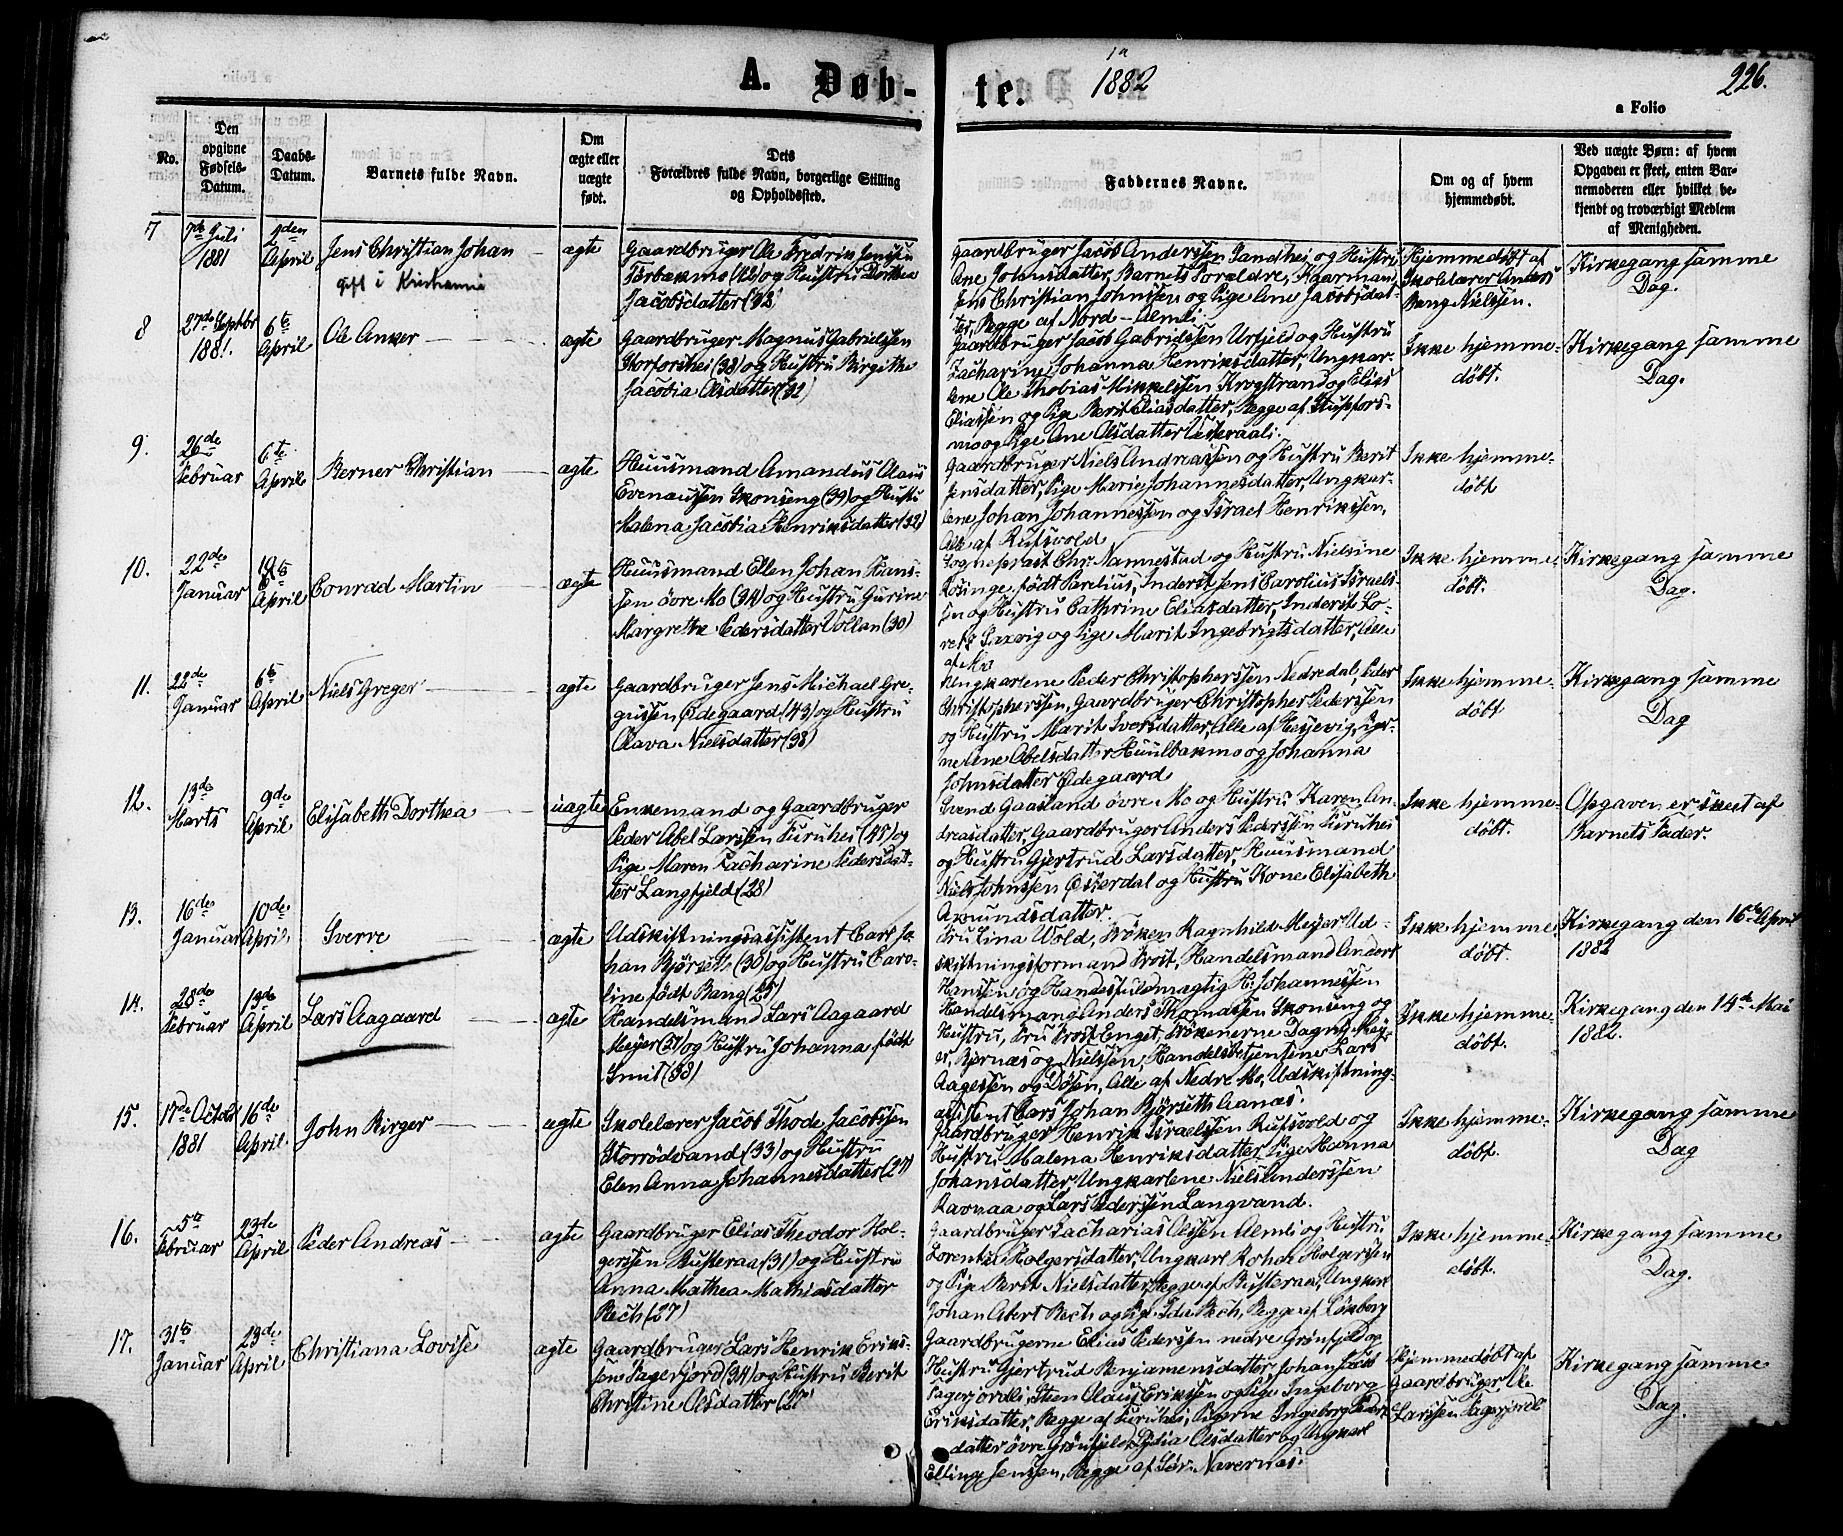 A. Døb-
te.
1a
1882
226.
a Folio
No.
Den
opgivne
Fødsels-
Datum.
Daabs-
Datum.
Barnets fulde Navn.
Om
ægte eller
uægte
født.
Dets
Forældres fulde Navn, borgerlige Stilling
og Opholdssted.
Faddernes Navne.
Om og af hvem
hjemmedøbt.
Ved uægte Børn: af hvem
Opgaven er skeet, enten Bar-
nemoderen eller hvilket be-
kjendt og troværdigt Medlem
af Menigheden.
7
7de Juli
1881
2den
April
Jens Christian Johan
gift i Kristiania
ægte
Gaardbruger Ole Fredrik Jenssen
Torbakmo (42) og Hustru Dorthea
Jacobsdatter (32
Gaardbruger Jacob Anderssen Sandhei og Hustru
Ane Johnsdatter, Barnets Forældre, Kaarmand
Jens Christian Johnssen og Pige Ane Jacobsdat-
ter, Begge af Nord-Almli
Hjemmedøbt af
Skolelærer Anders
Bang Nielssen.
Kirkegang samme
Dag.
8
27de Septbr
1881.
6te
April
Ole Anker
ægte
Gaardbruger Magnus Gabrielssen
Storforshei (38) og Hustru Birgithe
Jacobia Olsdatter (32)
Gaardbruger Jacob Gabrielssen Urfjeld og Hustru
Zacharine Johanna Henriksdatter, Ungkar-
lene Ole Thobias Mikkelssen Krogstrand og Elias
Eliassen og Pige Berit Eliasdatter, Begge af Stupfors-
mo og Pige Ane Olsdatter Uskeraali.
Ikke hjemme-
døbt.
Kirkegang samme
Dag.
9.
26de
Februar
6te
April
Berner Christian
ægte
Huusmand Amandus Olaus
Evenaussen Skonseng (39) og Hustr.
Malena Jacobia Henriksdatter (32)
Gaardbruger Niels Andreassen og Hustru Berit
Jensdatter, Pige Marie Johannesdatter, Ungkar-
lene Johan Johannessen og Israel Henrikssen,
Alle af Rufsvold
Ikke hjemme-
døbt
10.
22de
Januar
April
Conrad Martin
ægte
Huusmand Ellen Johan Hans-
sen øvre Mo (34) og Hustru Gurine
Margrethe Pedersdatter Vollan (30)
Sogneprest Chr. Nannestad og Hustru Nielsine
Kosinge, født Parelius, Inderst Jens Carolius Israels-
sen og Hustru Cathrine Eliasdatter, Inderst Lo-
rets Saxvig og Pige Marit Ingebrigtsdatter, Alle
af Mo
Ikke hjemme-
døbt.
Kirkegang samme
Dag.
11.
22de
Januar
6te
April
Niels Greger
ægte
Gaardbruger Jens Michael Gre-
gussen Ødegaard (43) og Hustru
Olava Nielsdatter (38)
Ungkarlene Peder Christopherssen Nedredal, Peder
Christopherssen, Gaardbruger Christopher Pederssen
og Hustru Marit Sversdatter, Alle af Hesjevig, Piger-
ne Ane Abelsdatter Huulbakmo og Johanna
Johnsdatter Ødegaard
Ikke hjemme-
døbt.
Kirkegang samme
Dag
12.
13de
Marts
9de
April
Elisabeth Dorthea
uægte
Enkemand og Gaardbruger
Peder Abel Larssen Furuhei (45) og
Pige Maren Zacharine Pedersdat-
ter Langfjeld (28)
Svend Gaasland øvre Mo og Hustru Karen An-
dreasdatter, Gaardbruger Anders Pederssen Furuhei
og Hustru Gjertrud Larsdatter, Huusmand
Niels Johnssen Østerdal og Hustru Kone Elisabeth
Amundsdatter.
Ikke hjemme-
døbt.
Opgaven er skeet af
Barnets Fader.
13.
16de
Januar
10de
April
Sverre
ægte
Udskiftningsassistent Carl Jo-
han Bjørseth (30) og Hustru Caro-
line født Bang (25)
Fru Lina Wold, Frøken Ragnhild Meyer Ud-
skiftningsformand Frost, Handelsmand Andors
Hanssen og Handelsfuldmægtig H. Johannessen
Ikke hjemme-
døbt.
Kirkegang den 16de April
1882
14.
28de
Februar
13de
April
Lars Aagaard
ægte
Handelsmand Lars Aagaard
Meyer (51) og Hustru Johanna født
Smit (38)
Handelsmand Anders Thomassen Skonseng og
Hustru, Fru Frost Enget, Frøkenerne Dagny Mey-
er, Bjørnæs og Nielssen, Handelsbetjentene Lars
Aagessen og Døsen, Alle af Nedre Mo, Udskiftning-
assistent Carl Johan Bjørseth Aanæs.
Ikke hjemme-
døbt.
Kirkegang den 14de Mai
1882.
15.
17de Octob
1881
16de
April.
John Birger
ægte
Skolelærer Jacob Thode Jacobssen
Storrødvand (33) og Hustru
Elen Anna Johannesdatter (27)
Gaardbruger Henrik Israelssen Rufsvold og
Hustru Malena Henriksdatter, Pige Hanna
Johansdatter, Ungkarlene Niels Anderssen
Ravnaa og Lars Pederssen Langvand.
Ikke hjemme-
døbt.
Kirkegang samme
Dag
16.
5te
Februar
23de
April
Peder Andreas
ægte
Gaardbruger Elias Theodor Hol-
gerssen Busteraa (31) og Hustru
Anna Mathea Mathiasdatter
Bech (27)
Gaardbruger Zacharias Olssen Almli og Hustru
Lorentse Holgersdatter, Ungkarl Johan Holgerssen
og Pige Berit Nielsdatter, Begge af Busteraa, Ungkarl
Johan Abert Bech og Pige Ida Bech, Begge af Lønborg
Ikke hjemme-
døbt.
Kirkegang samme
Dag.
17.
31te
Januar
23de
April
Christiana Lovise
ægte
Gaardbruger Lars Henrik Eriks-
sen Fagerjord (34) og Hustru Berit
Christine Olsdatter (28
Gaardbrugerne Elias Pederssen nedre Grønfjeld og
Hustru Gjertrud Benjamensdatter, Johan Jacob
Fagerjordli, Steen Olaus Erikssen og Pige Ingeborg
Eriksdatter, Begge af Furuhei, Pigerne Ingeborg Peders-
datter øvre Grønfjeld, Lydia Olsdatter og Ungkarl
Ellinge Jenssen, Begge af Sør-Nævernæs.
Hjemmedøbt af
Gaardbruger Ole
Larssen Fagerjord
Kirkegang samme
Dag.